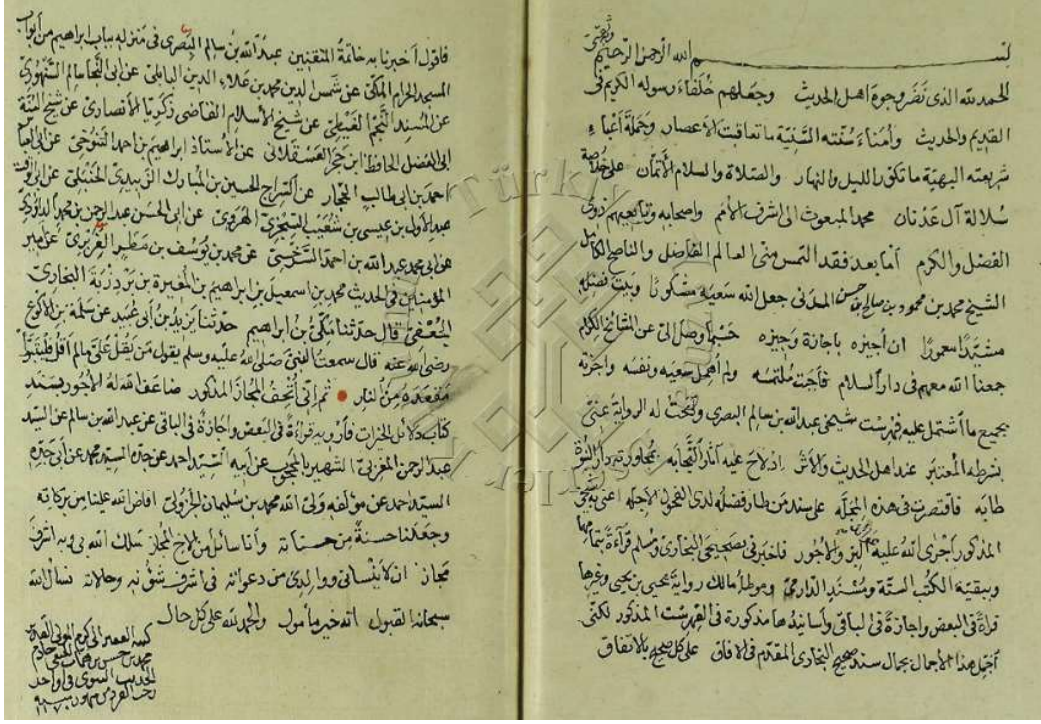 بسم الله الرحمن الرحيم
الحمد لله الذى نضر وجوه اهل الحديث وجعلهم خلفاء رسوله الكريم فى
القديم والحديث وأمناء سنته السنية ما تعاقبت الاعصار وحملة أعباء
شريعته البهية ما تكور الليل والنهار والصلاة والسلام الأتمان على خلاصة
سلالة آل عدنان محمد المبعوث الى اشرف الأمم واصحابه وتابعيهم ذوى
الفضل والكرم أما بعد فقد التمس منى العالم الفاضل والناصح الكامل
الشيخ محمد بن محمود بن صالح بن حسن المدنى جعل الله سعيه مشكورا وبيت فضله
مشيدا معمورا ان أجيزه باجازة وجيزه حسبما وصل الى عن المشائخ الكرام
جمعنا الله معهم فى دار السلام فأجبت ملتمسه ولم أهمل سعيه ونفسه واجزته
بجميع ما أشتمل عليه فهرست شيخى عبد الله بن سالم البصرى وأبحت له الرواية عنى
بشرطه المعتبر عند اهل الحديث والأثر اذ لاح عليه آثار النجابه بمجاورته دار النبوة
طابه فاقتصرت فى هذه العجله على سند من طار فضله لدى الفحول الأجله اعنى به شيخى
المذكور أجرى الله عليه البر والأجور فاخبرنى بصحيحى البخارى ومسلم قراءة بتمامهما
وببقية الكتب الستة ومسند الدارمى وموطأ مالك رواية يحيى بن يحيى وغيرها
قراءة فى البعض واجازة فى الباقى وأسانيدها مذكورة فى الفهرست المذكور لكنى
أجمل هذا الاجمال بجمال سند صحيح البخارى المقدم فى الافاق على كل صحيح بالاتفاق
فاقول أخبرنا به خاتمة المتقنين عبد الله بن سالم البصرى فى منزله بباب ابراهيم من أبواب
المسجد الحرام المكى عن شمس الدين محمد بن علاء الدين البابلى عن ابى النجا سالم السنهورى
عن المسند النجم الغيطى عن شيخ الأسلام القاضى زكريا الأنصارى عن شيخ السنة
ابى الفضل الحافظ ابن حجر العسقلانى عن الأستاذ ابراهيم بن احمد التنوخى عن ابى العباس
احمد بن ابى طالب الحجار عن السراج الحسين بن المبارك الزبيدى الحنبلى عن ابى الوقت
عبد الأول بن عيسى بن شعيب السجزى الهروى عن ابى الحسن عبد الرحمن بن محمد الداودى
عن ابى محمد عبد الله بن احمد السرخسى عن محمد بن يوسف بن مطر الفربرى عن امير
المؤمنين فى الحديث محمد بن اسمعيل بن ابراهيم بن المغيرة بن بردزبة البخارى
الجعفى قال حدثنا مكى بن ابراهيم حدثنا يزيد بن أبى عبيد عن سلمة بن الاكوع
رضى الله عنه قال سمعت النبى صلى الله عليه وسلم يقول من يقل على ما لم اقل فليتبوأ
مقعده من النار ثم انى أتحف المجاز المذكور ضاعف الله له الأجور بسند
كتاب دلائل الخيرات فأرويه قراءة فى البعض واجازة فى الباقى عن عبد الله بن سالم عن السيد
عبد الرحمن المغربى الشهير بالمحجوب عن أبيه السيد احمد عن جده السيد محمد عن أبى جده
السيد احمد عن مؤلفه ولى الله محمد بن سليمان الجزولى افاض الله علينا من بركاته
وجعلنا حسنة من حسناته وأنا سائل من الاخ المجاز سلك الله بى وبه اشرف
مجاز ان لا ينسانى ووالدى من دعواته فى اشرف شؤنه وحالاته نسأل الله
سبحانه القبول انه خير مأمول والحمد لله على كل حال
كتبه الفقير الى كرم المولى القدير
محمد بن حسن بن همات الحنفى خادم
الحديث النبوى فى أواخر
رجب الفرد من شهور سنة
Türkiye